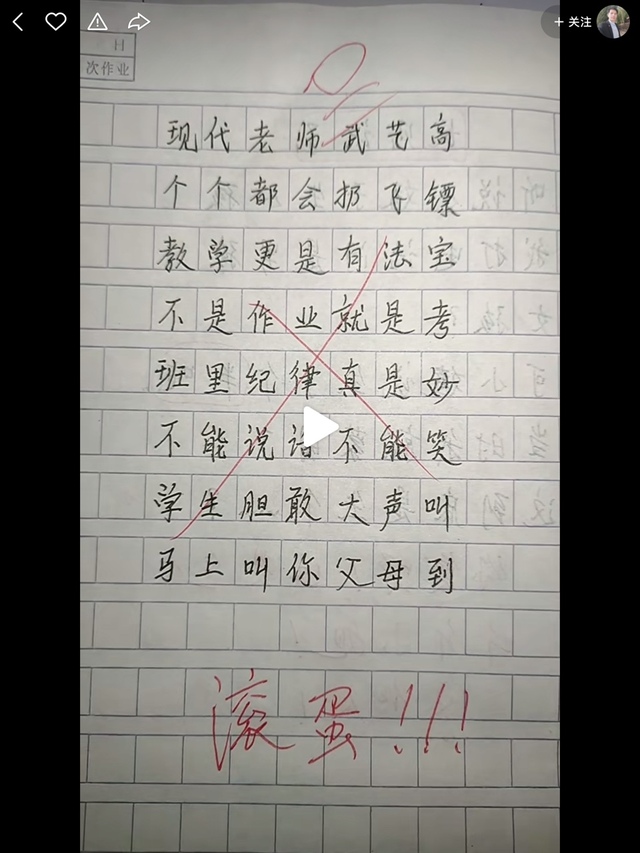 + 关注
日
次作业
0
现代老师武艺高
个个都会扔飞镖
教学更是有法宝
不是作业就是考
班里纪律真是妙
不能说话不能笑
学生胆敢大声叫
马上叫你父母到
滚蛋!!!